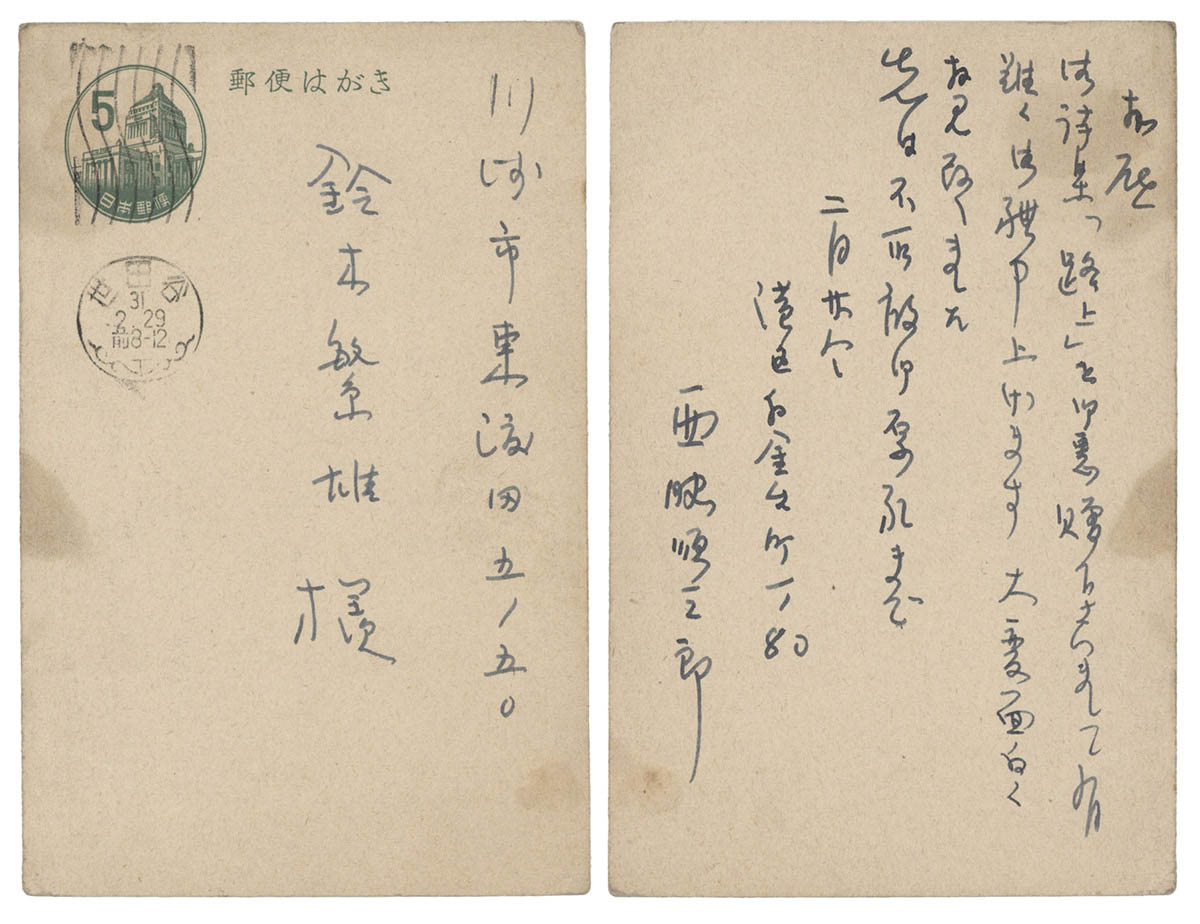 郵便はがき
5
日本郵便
世田谷
31
2.29
前8-12
川崎市東渡田五ノ五〇
鈴木繁雄
様
拝啓
御詩集「路上」を御恵贈下さいまして有
難く御礼申上げます 大変面白く
拝見致しました
先は不取敢御厚礼まで
二月廿八日
港区白金台町一ノ80
西脇順三郎